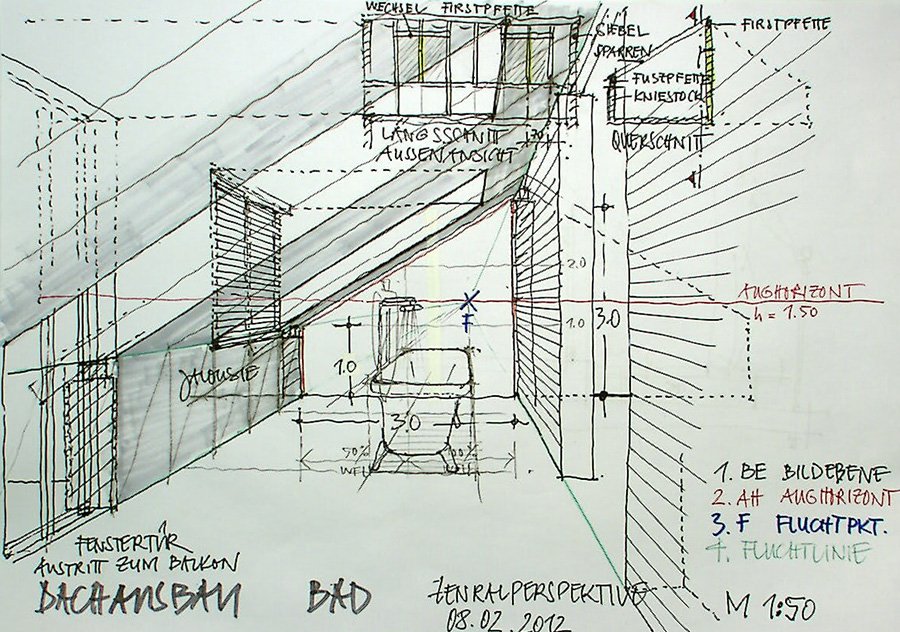 WECHSEL FIRSTPFETTE
GIEBEL
SPARREN
FIRSTPFETTE
FUSZPFETTE
KNIESTOCK
LÄNGSSCHNITT
AUSSENANSICHT
QUERSCHNITT
2.0
AUGHORIZONT
h = 1.50
F
1.0
3.0
1.0
JALOUSIE
3.0
50%
1. BE BILDEBENE
2. AH AUGHORIZONT
3. F FLUCHTPKT.
4. FLUCHTLINIE
FENSTERTÜR
AUSTRITT ZUM BALKON
DACHAUSBAU BAD
ZENRALPERSPEKTIVE
08.02.2012
M 1:50